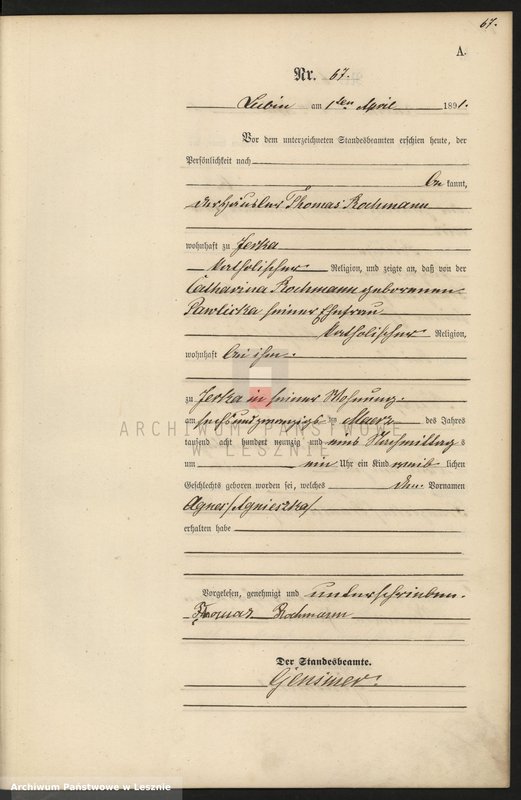 67.
A.
Nr. 67.
Lubin am 1ten April 1891.
Vor dem unterzeichneten Standesbeamten erschien heute, der
Persönlichkeit nach
be kannt,
der Häusler Thomas Rochmann
wohnhaft zu Jerka
katholischer Religion, und zeigte an, daß von der
Catharina Rochmann geborenen
Pawlicka seiner Ehefrau
katholischer Religion,
wohnhaft bei ihm
zu Jerka in seiner Wohnung
am sechsundzwanzigs ten Maerz des Jahres
tausend acht hundert neunzig und eins Nachmittag s
um ein Uhr ein Kind weib lichen
Geschlechts geboren worden sei, welches den Vornamen
Agnes /Agnieszka/
erhalten habe
Vorgelesen, genehmigt und unterschrieben.
Rochmann
Der Standesbeamte.
ARCHIWUM PAŃSTWOWE
W LESZNIE
Archiwum Państwowe w Lesznie